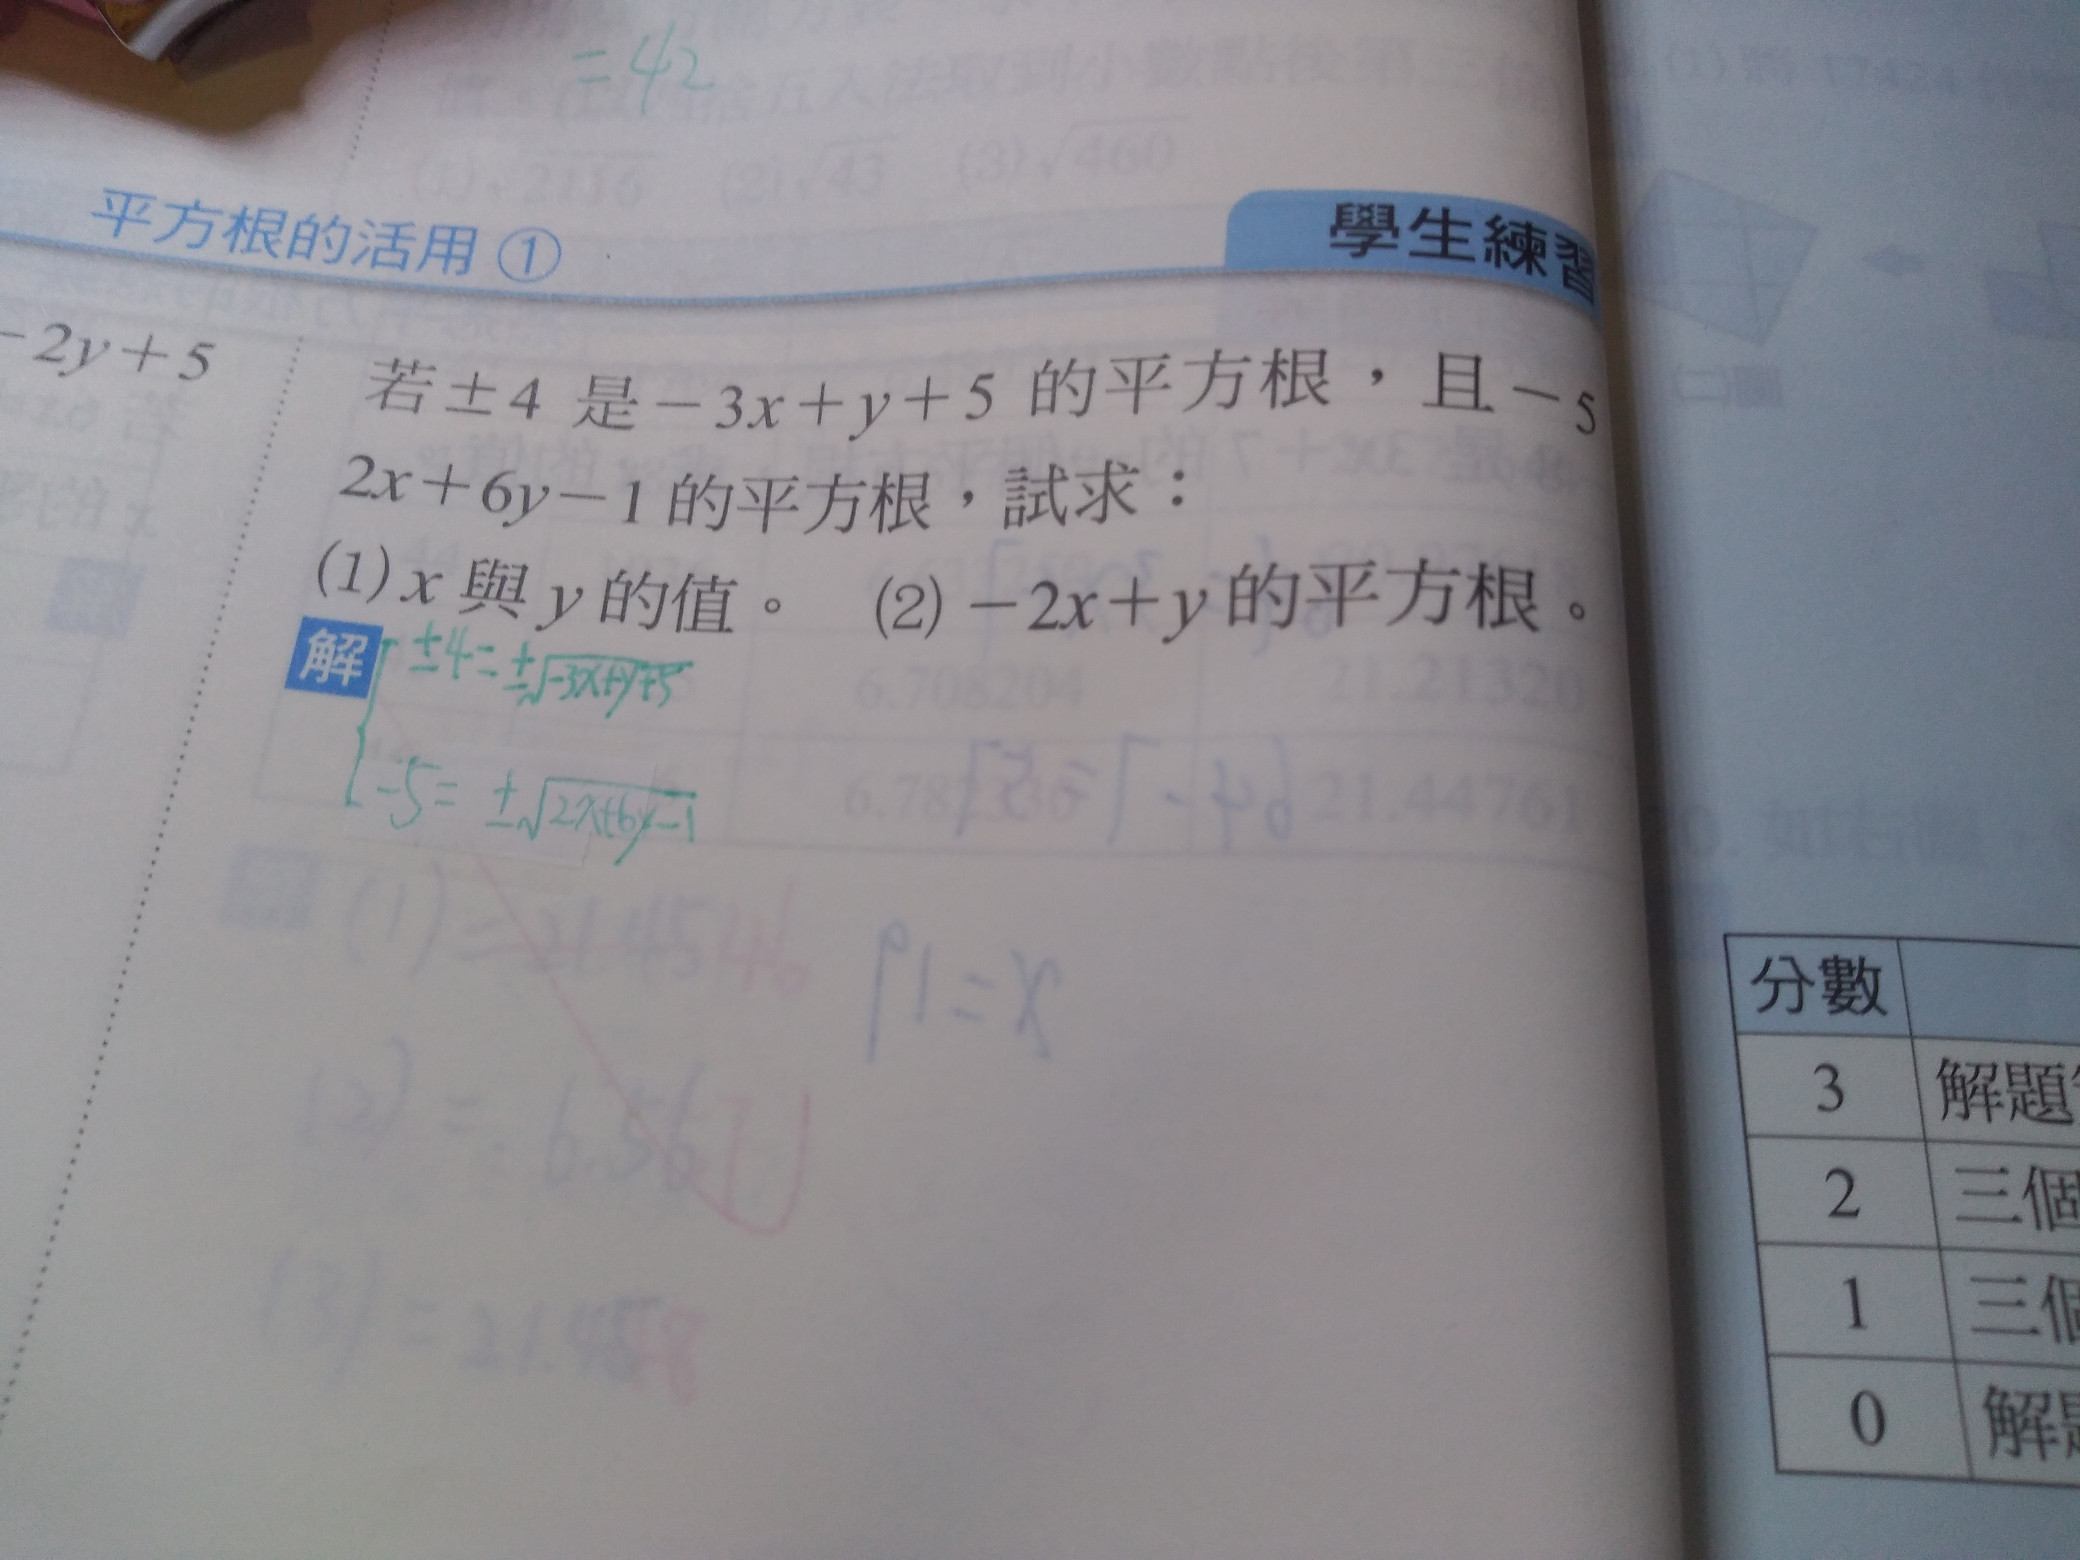 =42
平方根的活用 ①
學生練習
-2y+5
若±4 是-3x+y+5 的平方根，且-5
2x+6y-1 的平方根，試求：
(1) x 與 y 的值。 (2) -2x+y 的平方根。
解
±4=±√-3x+y+5
-5=±√2x+6y-1
分數
3 解題
2 三個
1 三個
0 解題